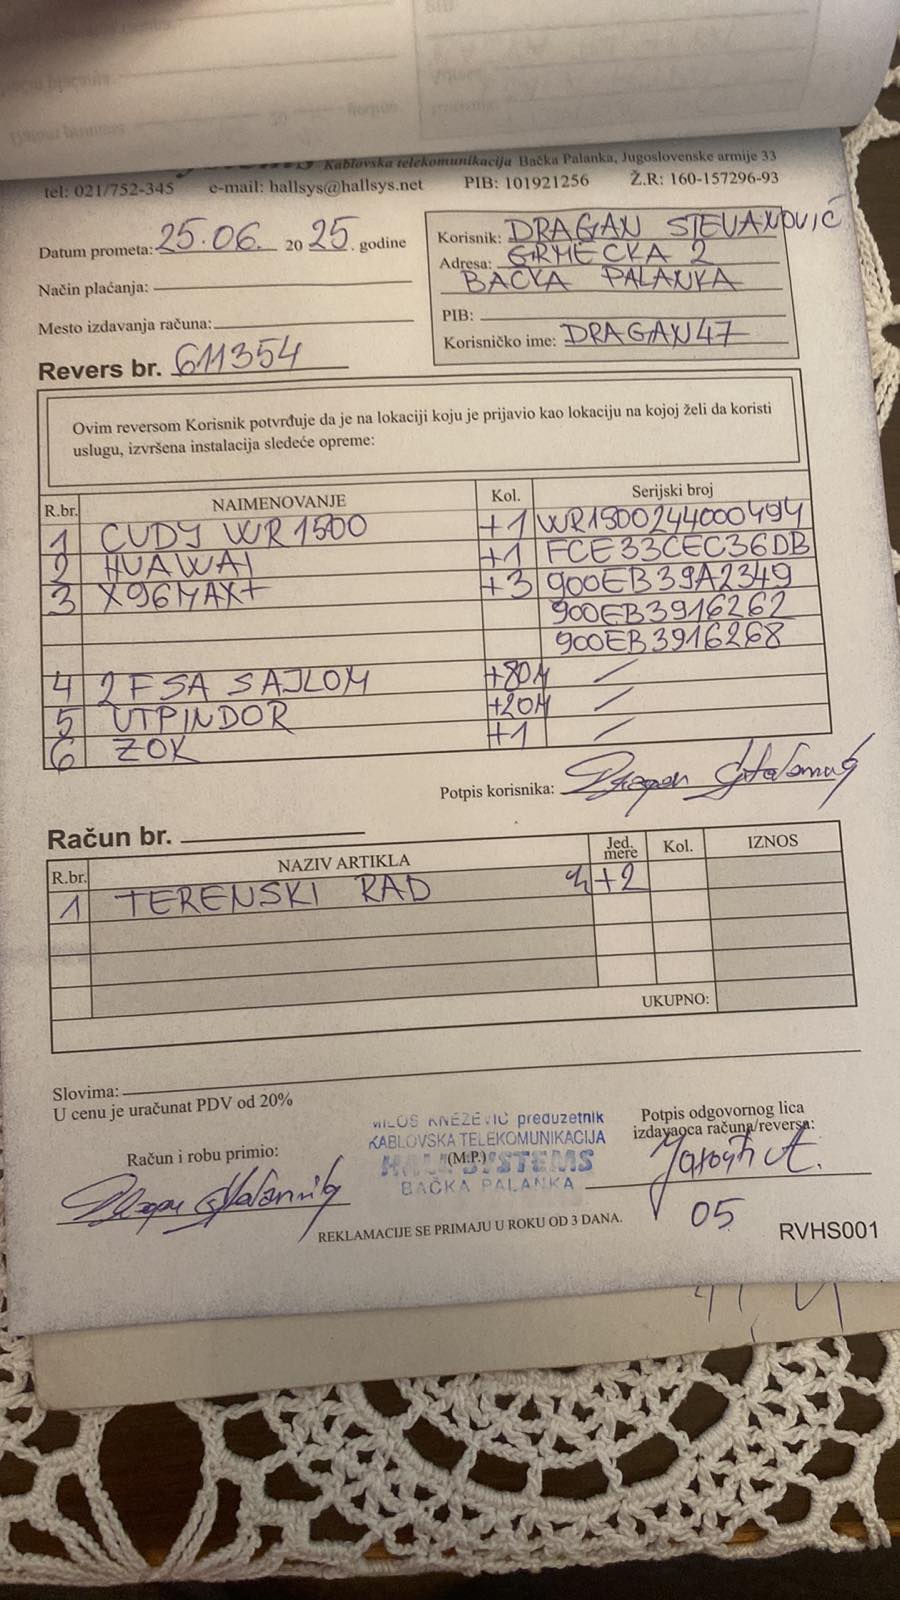 Kablovska telekomunikacija Bačka Palanka, Jugoslovenske armije 33
tel: 021/752-345 e-mail: hallsys@hallsys.net PIB: 101921256 Ž.R: 160-157296-93
Datum prometa: 25.06. 2025. godine
Način plaćanja:
Mesto izdavanja računa:
Revers br. 611354
Korisnik: DRAGAN STEVANOVIĆ
Adresa: GRMEČKA 2
BAČKA PALANKA
PIB:
Korisničko ime: DRAGAN47
Ovim reversom Korisnik potvrđuje da je na lokaciji koju je prijavio kao lokaciju na kojoj želi da koristi
uslugu, izvršena instalacija sledeće opreme:
R.br. NAIMENOVANJE Kol. Serijski broj
1 CUDY WR1500 +1 WR1500244000494
2 HUAWAI +1 FCE33CEC36DB
3 X96MAX+ +3 900EB39A2349
900EB3916262
900EB3916268
4 2FSA SAJLOM +80M /
5 UTPINDOR +20M /
6 ZOK +1 /
Potpis korisnika:
Račun br.
R.br. NAZIV ARTIKLA Jed. mere Kol. IZNOS
1 TERENSKI RAD +2
UKUPNO:
Slovima:
U cenu je uračunat PDV od 20%
Račun i robu primio:
MILOŠ KNEŽEVIĆ preduzetnik
KABLOVSKA TELEKOMUNIKACIJA
(M.P.)
HALL SYSTEMS
BAČKA PALANKA
Potpis odgovornog lica
izdavaoca računa/reversa:
05
REKLAMACIJE SE PRIMAJU U ROKU OD 3 DANA.
RVHS001